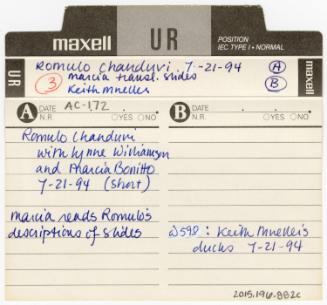 maxell UR POSITION
IEC TYPE I • NORMAL
UR
Romulo Chanduvi 7-21-94 A
3 marcia transl. slides B
Keith Mueller
A DATE AC-172
N.R. YES NO
B DATE
N.R. YES NO
Romulo Chanduvi
with Lynne Williamson
and Marcia Bonitto
7-21-94 (short)
marcia reads Romulo's
descriptions of slides
Side B: Keith Mueller's
ducks 7-21-94
2015.196.882c